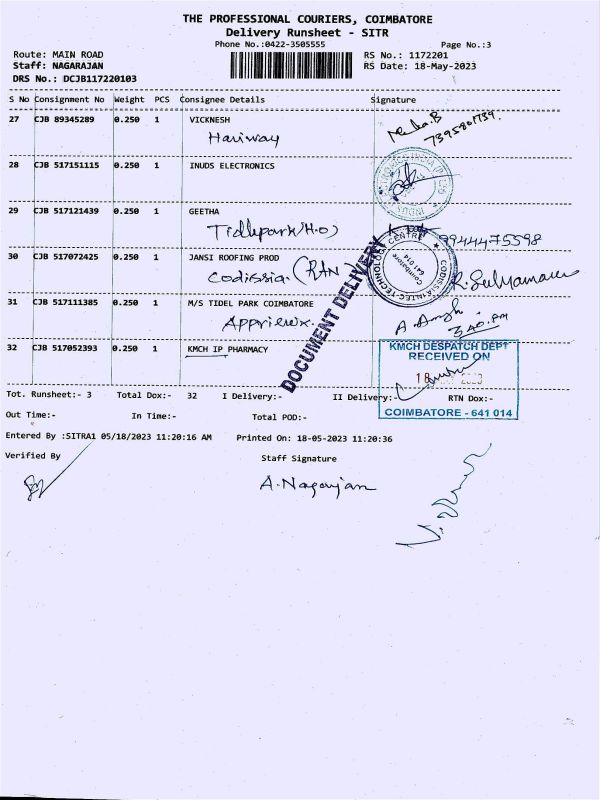 THE PROFESSIONAL COURIERS, COIMBATORE
Delivery Runsheet - SITR
Phone No.:0422-3505555 Page No.:3
Route: MAIN ROAD RS No.: 1172201
Staff: NAGARAJAN RS Date: 18-May-2023
DRS No.: DCJB117220103
S No Consignment No Weight PCS Consignee Details Signature
27 CJB 89345289 0.250 1 VICKNESH
Hariway 7395801739.
28 CJB 517151115 0.250 1 INUDS ELECTRONICS
29 CJB 517121439 0.250 1 GEETHA
Tidlepark(H.O) 9944475598
30 CJB 517072425 0.250 1 JANSI ROOFING PROD
Codissia. (RTN)
CODISSIA INTEC-TECHNOLOGY CENTRE
Coimbatore
641 014
DOCUMENT DELIVERY
31 CJB 517111385 0.250 1 M/S TIDEL PARK COIMBATORE
3.40.PM
32 CJB 517052393 0.250 1 KMCH IP PHARMACY
KMCH DESPATCH DEPT
RECEIVED ON
18 2023
COIMBATORE - 641 014
Tot. Runsheet:- 3 Total Dox:- 32 I Delivery:- II Delivery:- RTN Dox:-
Out Time:- In Time:- Total POD:-
Entered By :SITRA1 05/18/2023 11:20:16 AM Printed On: 18-05-2023 11:20:36
Verified By Staff Signature
A.Nagarajan